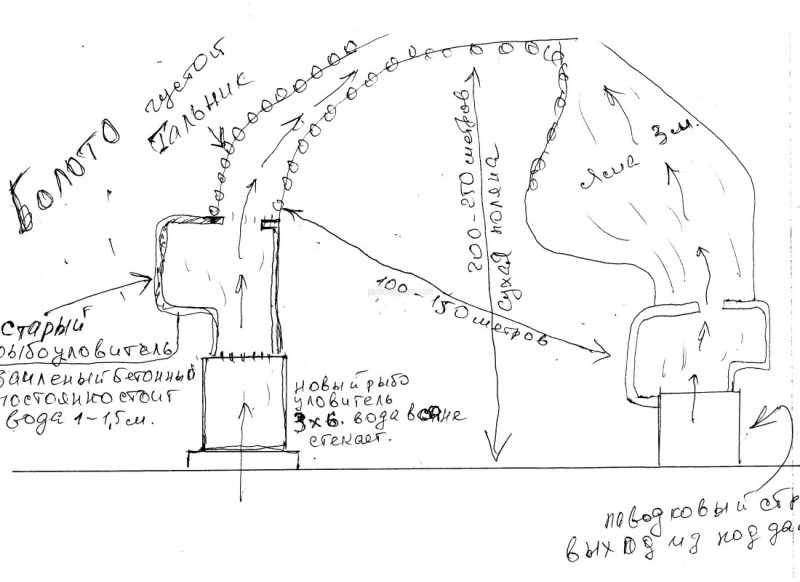 Болото
густой
Тальник
200-250 метров
сухая поляна
Яма 3м.
100-150 метров
старый
рыбоуловитель
заиленый бетонный
постоянно стоит
вода 1-1,5м.
новый рыбо
уловитель
3х6. вода
стекает.
паводковый
выход из под